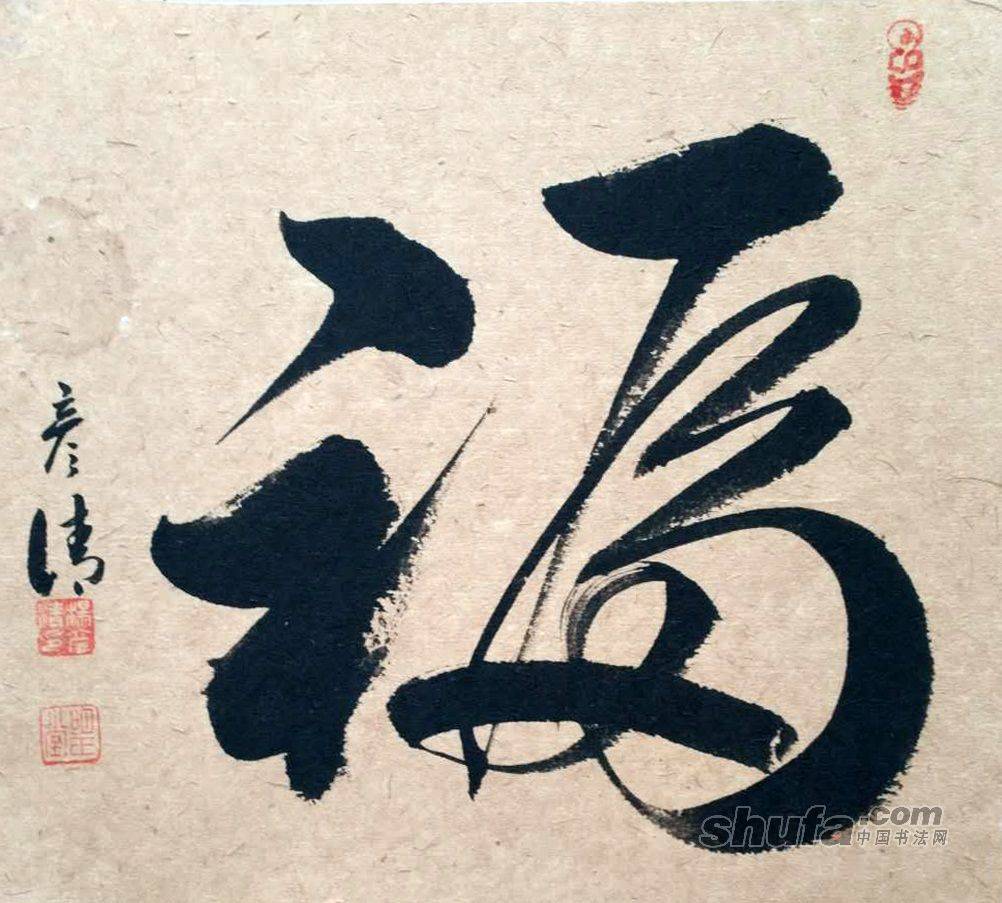 福
彦清
楊彦清印
shufa.com
中国书法网